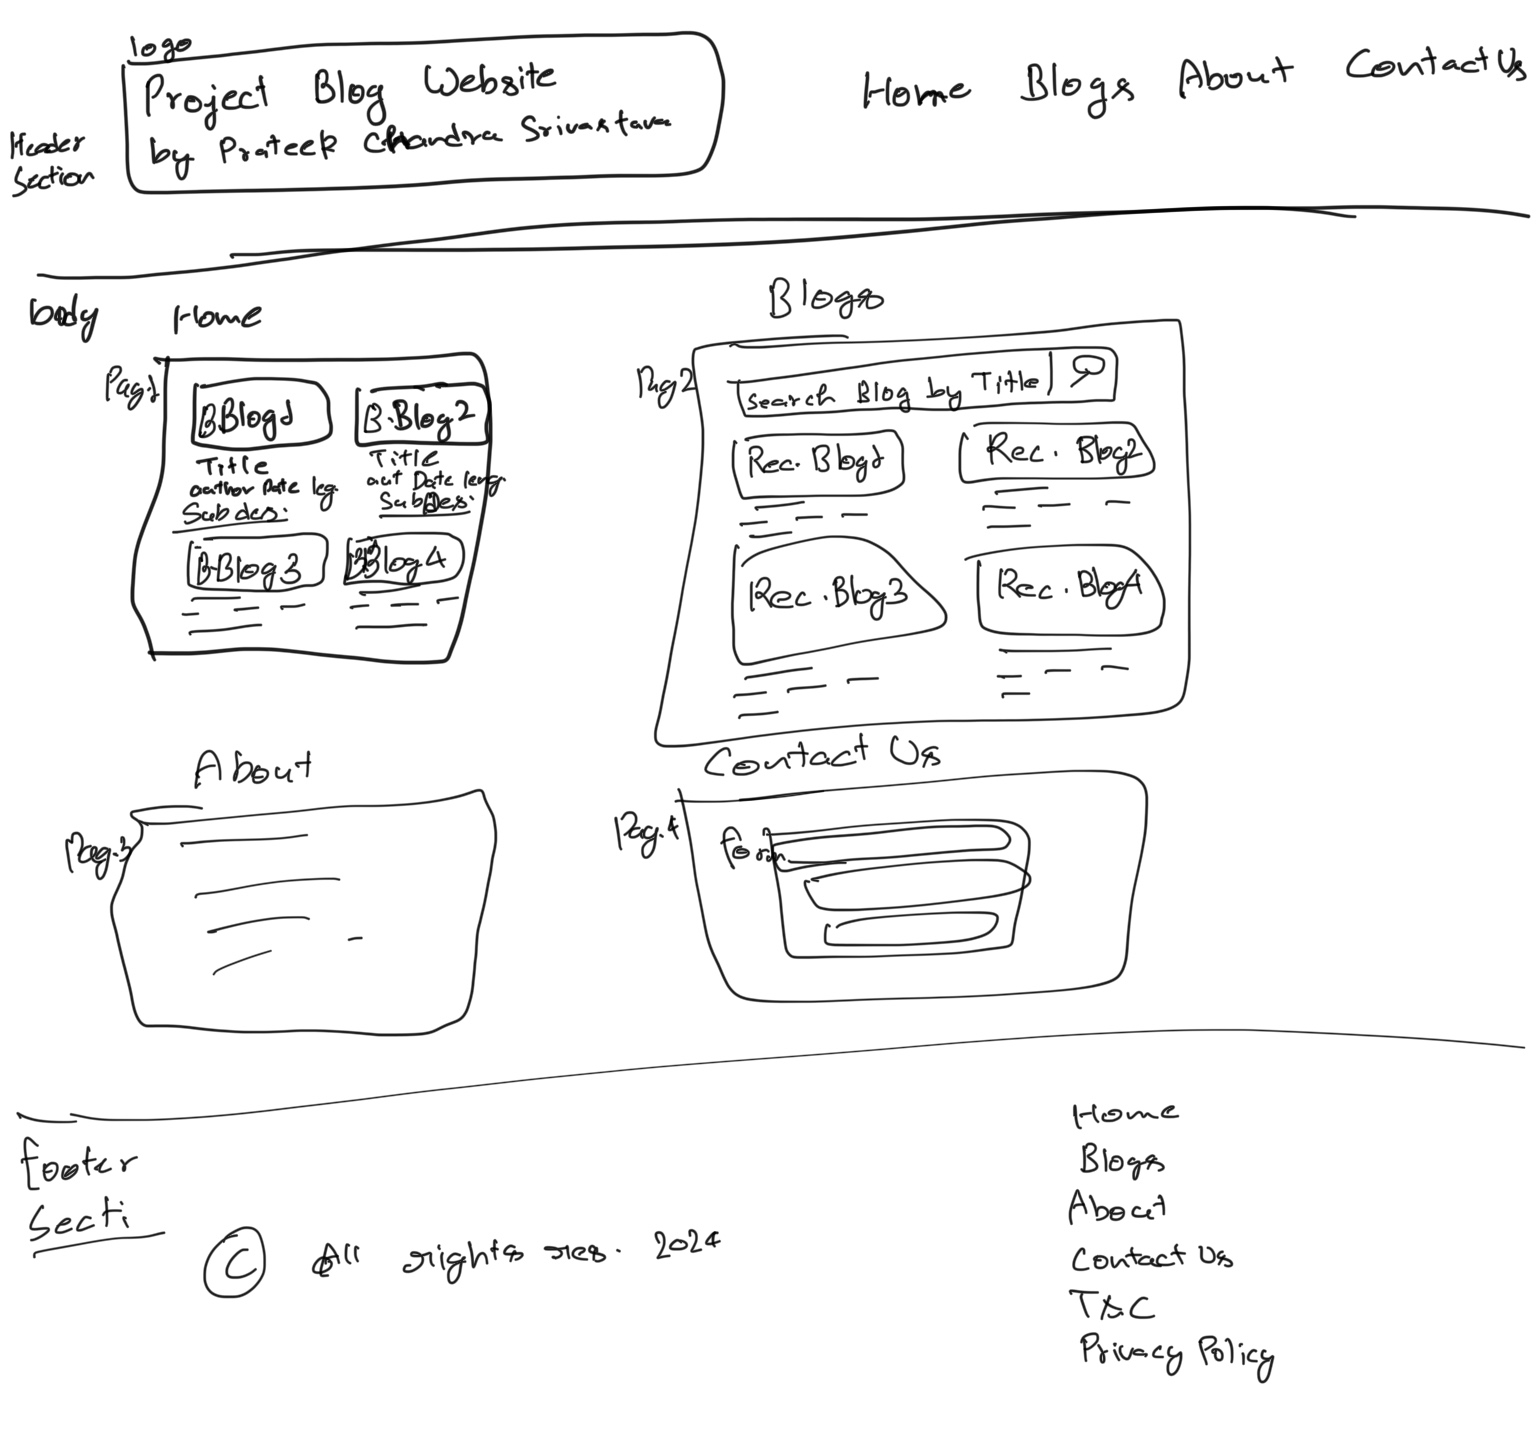 logo
Project Blog Website
by Prateek Chandra Srivastava
Home Blogs About Contact Us
Header
Section
body
Home
Pag.1
B.Blog1
B.Blog2
Title
author Date leg.
Sub des.
Title
aut Date leng.
Sub Des.
B.Blog3
B.Blog4
Blogs
Pag2
Search Blog by Title
Rec. Blog1
Rec. Blog2
Rec. Blog3
Rec. Blog4
About
Pag.3
Contact Us
Pag.4
form
footer
Secti
© All rights res. 2024
Home
Blogs
About
Contact Us
T&C
Privacy Policy